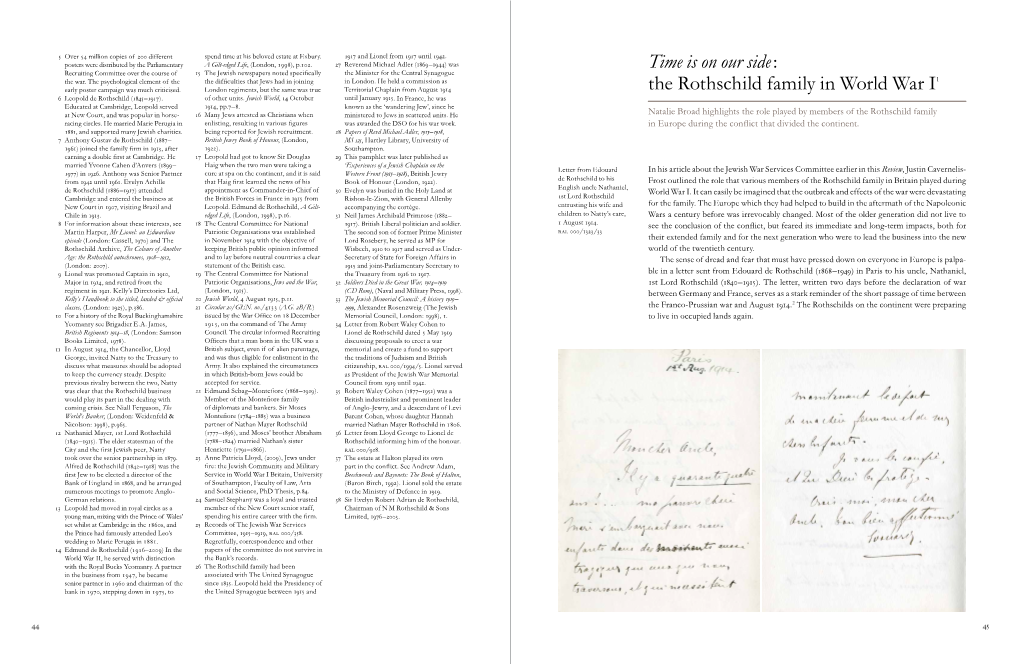 5 Over 54 million copies of 200 different
posters were distributed by the Parliamentary
Recruiting Committee over the course of
the war. The psychological element of the
early poster campaign was much criticised.
6 Leopold de Rothschild (1845–1917).
Educated at Cambridge, Leopold served
at New Court, and was popular in horse-
racing circles. He married Marie Perugia in
1881, and supported many Jewish charities.
7 Anthony Gustav de Rothschild (1887–
1961) joined the family firm in 1915, after
earning a double first at Cambridge. He
married Yvonne Cahen d'Anvers (1899–
1977) in 1926. Anthony was Senior Partner
from 1942 until 1961. Evelyn Achille
de Rothschild (1886–1917) attended
Cambridge and entered the business at
New Court in 1907, visiting Brazil and
Chile in 1913.
8 For information about these interests, see
Martin Harper, Mr Lionel: an Edwardian
episode (London: Cassell, 1970) and The
Rothschild Archive, The Colours of Another
Age: the Rothschild autochromes, 1908–1912,
(London: 2007).
9 Lionel was promoted Captain in 1910,
Major in 1914, and retired from the
regiment in 1921. Kelly's Directories Ltd,
Kelly's Handbook to the titled, landed & official
classes. (London: 1957), p.586.
10 For a history of the Royal Buckinghamshire
Yeomanry see Brigadier E.A. James,
British Regiments 1914–18, (London: Samson
Books Limited, 1978).
11 In August 1914, the Chancellor, Lloyd
George, invited Natty to the Treasury to
discuss what measures should be adopted
to keep the currency steady. Despite
previous rivalry between the two, Natty
was clear that the Rothschild business
would play its part in the dealing with
coming crisis. See Niall Ferguson, The
World's Banker, (London: Weidenfeld &
Nicolson: 1998), p.965.
12 Nathaniel Mayer, 1st Lord Rothschild
(1840–1915). The elder statesman of the
City and the first Jewish peer, Natty
took over the senior partnership in 1879.
Alfred de Rothschild (1842–1918) was the
first Jew to be elected a director of the
Bank of England in 1868, and he arranged
numerous meetings to promote Anglo-
German relations.
13 Leopold had moved in royal circles as a
young man, mixing with the Prince of Wales'
set whilst at Cambridge in the 1860s, and
the Prince had famously attended Leo's
wedding to Marie Perugia in 1881.
14 Edmund de Rothschild (1916–2009) In the
World War II, he served with distinction
with the Royal Bucks Yeomanry. A partner
in the business from 1947, he became
senior partner in 1960 and chairman of the
bank in 1970, stepping down in 1975, to
spend time at his beloved estate at Exbury.
A Gilt-edged Life, (London, 1998), p.102.
15 The Jewish newspapers noted specifically
the difficulties that Jews had in joining
London regiments, but the same was true
of other units. Jewish World, 14 October
1914, pp.7–8.
16 Many Jews attested as Christians when
enlisting, resulting in various figures
being reported for Jewish recruitment.
British Jewry Book of Honour, (London,
1922).
17 Leopold had got to know Sir Douglas
Haig when the two men were taking a
cure at spa on the continent, and it is said
that Haig first learned the news of his
appointment as Commander-in-Chief of
the British Forces in France in 1915 from
Leopold. Edmund de Rothschild, A Gilt-
edged Life, (London, 1998), p.16.
18 The Central Committee for National
Patriotic Organisations was established
in November 1914 with the objective of
keeping British public opinion informed
and to lay before neutral countries a clear
statement of the British case.
19 The Central Committee for National
Patriotic Organisations, Jews and the War,
(London, 1915).
20 Jewish World, 4 August 1915, p.11.
21 Circular 20/GI.N. no./4233 (A.G. 2B/R)
issued by the War Office on 18 December
1915, on the command of The Army
Council. The circular informed Recruiting
Officers that a man born in the UK was a
British subject, even if of alien parentage,
and was thus eligible for enlistment in the
Army. It also explained the circumstances
in which British-born Jews could be
accepted for service.
22 Edmund Sebag-Montefiore (1868–1929).
Member of the Montefiore family
of diplomats and bankers. Sir Moses
Montefiore (1784–1885) was a business
partner of Nathan Mayer Rothschild
(1777–1836), and Moses' brother Abraham
(1788–1824) married Nathan's sister
Henriette (1791–1866).
23 Anne Patricia Lloyd, (2009), Jews under
fire: the Jewish Community and Military
Service in World War I Britain, University
of Southampton, Faculty of Law, Arts
and Social Science, PhD Thesis, p.84.
24 Samuel Stephany was a loyal and trusted
member of the New Court senior staff,
spending his entire career with the firm.
25 Records of The Jewish War Services
Committee, 1915–1919, RAL 000/338.
Regretfully, correspondence and other
papers of the committee do not survive in
the Bank's records.
26 The Rothschild family had been
associated with The United Synagogue
since 1815. Leopold held the Presidency of
the United Synagogue between 1915 and
1917 and Lionel from 1917 until 1942.
27 Reverend Michael Adler (1869–1944) was
the Minister for the Central Synagogue
in London. He held a commission as
Territorial Chaplain from August 1914
until January 1915. In France, he was
known as the 'wandering Jew', since he
ministered to Jews in scattered units. He
was awarded the DSO for his war work.
28 Papers of Revd Michael Adler, 1915–1918,
MS 125, Hartley Library, University of
Southampton.
29 This pamphlet was later published as
'Experiences of a Jewish Chaplain on the
Western Front (1915–1918), British Jewry
Book of Honour (London, 1922).
30 Evelyn was buried in the Holy Land at
Rishon-le-Zion, with General Allenby
accompanying the cortège.
31 Neil James Archibald Primrose (1882–
1917). British Liberal politician and soldier.
The second son of former Prime Minister
Lord Rosebery, he served as MP for
Wisbech, 1910 to 1917 and served as Under-
Secretary of State for Foreign Affairs in
1915 and joint-Parliamentary Secretary to
the Treasury from 1916 to 1917.
32 Soldiers Died in the Great War, 1914–1919
(CD Rom), (Naval and Military Press, 1998).
33 The Jewish Memorial Council: A history 1919–
1999, Alexander Rosenzweig (The Jewish
Memorial Council, London: 1998), 1.
34 Letter from Robert Waley Cohen to
Lionel de Rothschild dated 5 May 1919
discussing proposals to erect a war
memorial and create a fund to support
the traditions of Judaism and British
citizenship, RAL 000/1994/5. Lionel served
as President of the Jewish War Memorial
Council from 1919 until 1942.
35 Robert Waley Cohen (1877–1952) was a
British industrialist and prominent leader
of Anglo-Jewry, and a descendant of Levi
Barent Cohen, whose daughter Hannah
married Nathan Mayer Rothschild in 1806.
36 Letter from Lloyd George to Lionel de
Rothschild informing him of the honour.
RAL 000/918.
37 The estate at Halton played its own
part in the conflict. See Andrew Adam,
Beechwoods and Bayonets: The Book of Halton,
(Baron Birch, 1992). Lionel sold the estate
to the Ministry of Defence in 1919.
38 Sir Evelyn Robert Adrian de Rothschild,
Chairman of N M Rothschild & Sons
Limited, 1976–2003.
44
Time is on our side:
the Rothschild family in World War I1
Natalie Broad highlights the role played by members of the Rothschild family
in Europe during the conflict that divided the continent.
Letter from Edouard
de Rothschild to his
English uncle Nathaniel,
1st Lord Rothschild
entrusting his wife and
children to Natty's care,
1 August 1914.
RAL 000/1323/33
In his article about the Jewish War Services Committee earlier in this Review, Justin Cavernelis-
Frost outlined the role that various members of the Rothschild family in Britain played during
World War I. It can easily be imagined that the outbreak and effects of the war were devastating
for the family. The Europe which they had helped to build in the aftermath of the Napoleonic
Wars a century before was irrevocably changed. Most of the older generation did not live to
see the conclusion of the conflict, but feared its immediate and long-term impacts, both for
their extended family and for the next generation who were to lead the business into the new
world of the twentieth century.
The sense of dread and fear that must have pressed down on everyone in Europe is palpa-
ble in a letter sent from Edouard de Rothschild (1868–1949) in Paris to his uncle, Nathaniel,
1st Lord Rothschild (1840–1915). The letter, written two days before the declaration of war
between Germany and France, serves as a stark reminder of the short passage of time between
the Franco-Prussian war and August 1914.2 The Rothschilds on the continent were preparing
to live in occupied lands again.
Paris
1er Aug. 1914.
Mon cher Oncle,
Il y a quarante quatre
ans! ... ma pauvre chère
Mère s'embarquait avec nous
enfants dans des moments aussi
tragiques que ceux que nous
traversons, et qui nécessitent
maintenant le départ
de ma chère femme et de mes
chers enfants.
Je vous les confie,
et que Dieu les protège.
Crois moi, mon cher
Oncle, ton bien affectionné
Edouard.
45